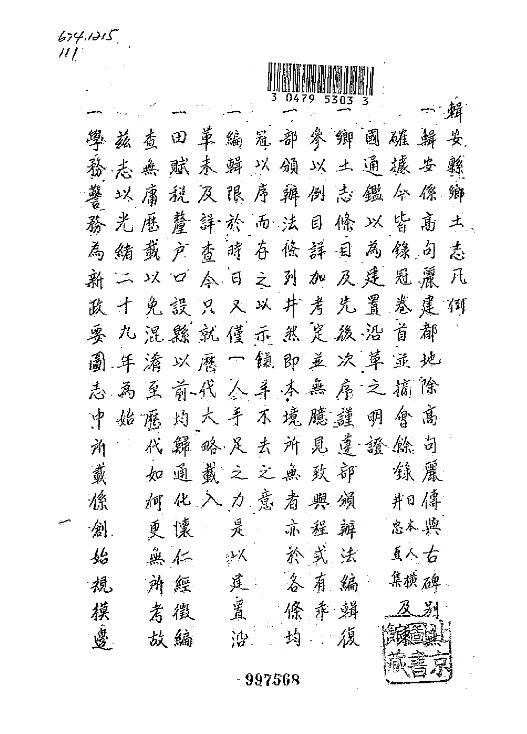 674.1215
111
3 0479 5303 3
輯安縣鄉土志凡例
一輯安係高句麗建都地除高句麗傳與古碑別無
確據今皆錄冠卷首並摘會餘錄日本人橫井忠直集及
國通鑑以為建置沿革之明證
一鄉土志條目及先後次序謹遵部頒辦法編輯復
參以例目詳加考定並無臆見致與程式有乖
一部頒辦法條列井然即本境所無者亦於各條均
冠以序而存之以示餼羊不去之意
一編輯限於時日又僅一人手足之力是以建置沿
革未及詳查今只就歷代大略載入
一田賦稅釐戶口設縣以前均歸通化懷仁經徵編
查無庸歷載以免混淆至歷代如何更無所考故
茲志以光緒二十九年為始
一學務警務為新政要圖志中所載係創始規模邊
京
圖書館
藏
997568